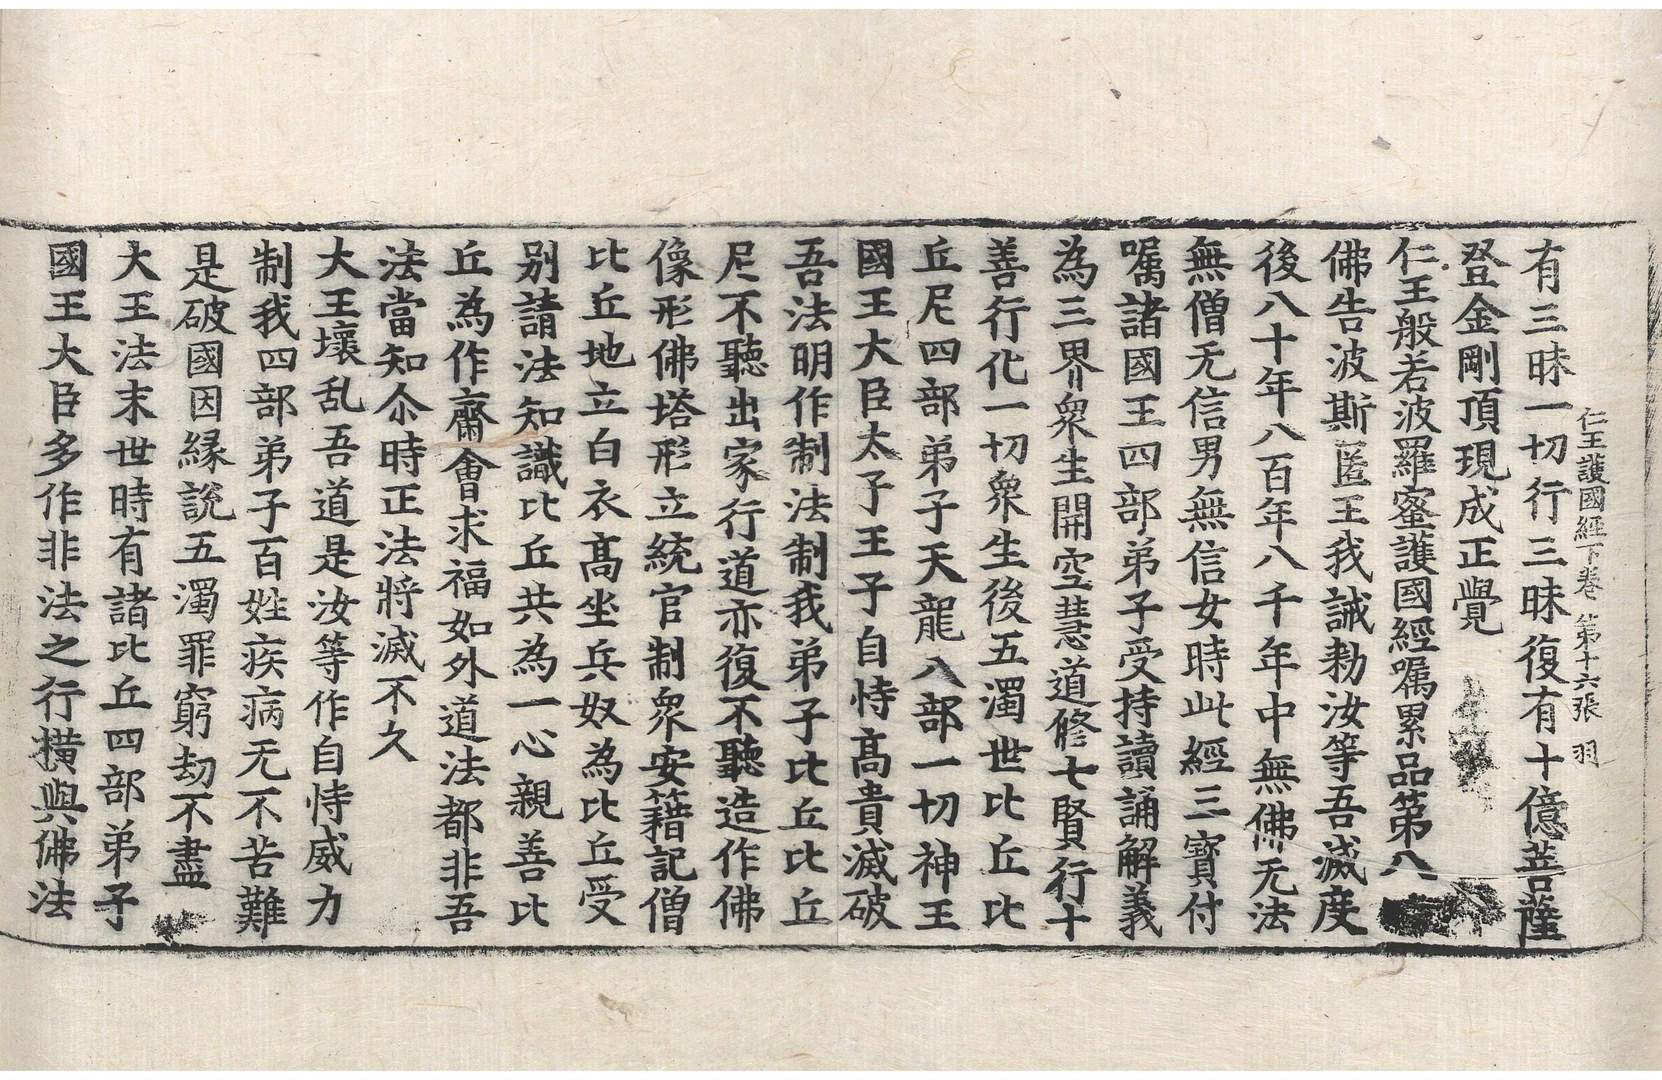 仁王護國經下卷 第十六張 羽
有三昧一切行三昧復有十億菩薩
登金剛頂現成正覺
仁王般若波羅蜜護國經嘱累品第八
佛告波斯匿王我誡勑汝等吾滅度
後八十年八百年八千年中無佛无法
無僧无信男無信女時此經三寶付
嘱諸國王四部弟子受持讀誦解義
為三界衆生開空慧道修七賢行十
善行化一切衆生後五濁世比丘比
丘尼四部弟子天龍八部一切神王
國王大臣太子王子自恃髙貴滅破
吾法明作制法制我弟子比丘比丘
尼不聽出家行道亦復不聽造作佛
像形佛塔形立統官制衆安籍記僧
比丘地立白衣髙坐兵奴為比丘受
别請法知識比丘共為一心親善比
丘為作齋會求福如外道法都非吾
法當知尒時正法將滅不久
大王壞乱吾道是汝等作自恃威力
制我四部弟子百姓疾病无不苦難
是破國因縁說五濁罪窮劫不盡
大王法末世時有諸比丘四部弟子
國王大臣多作非法之行橫與佛法